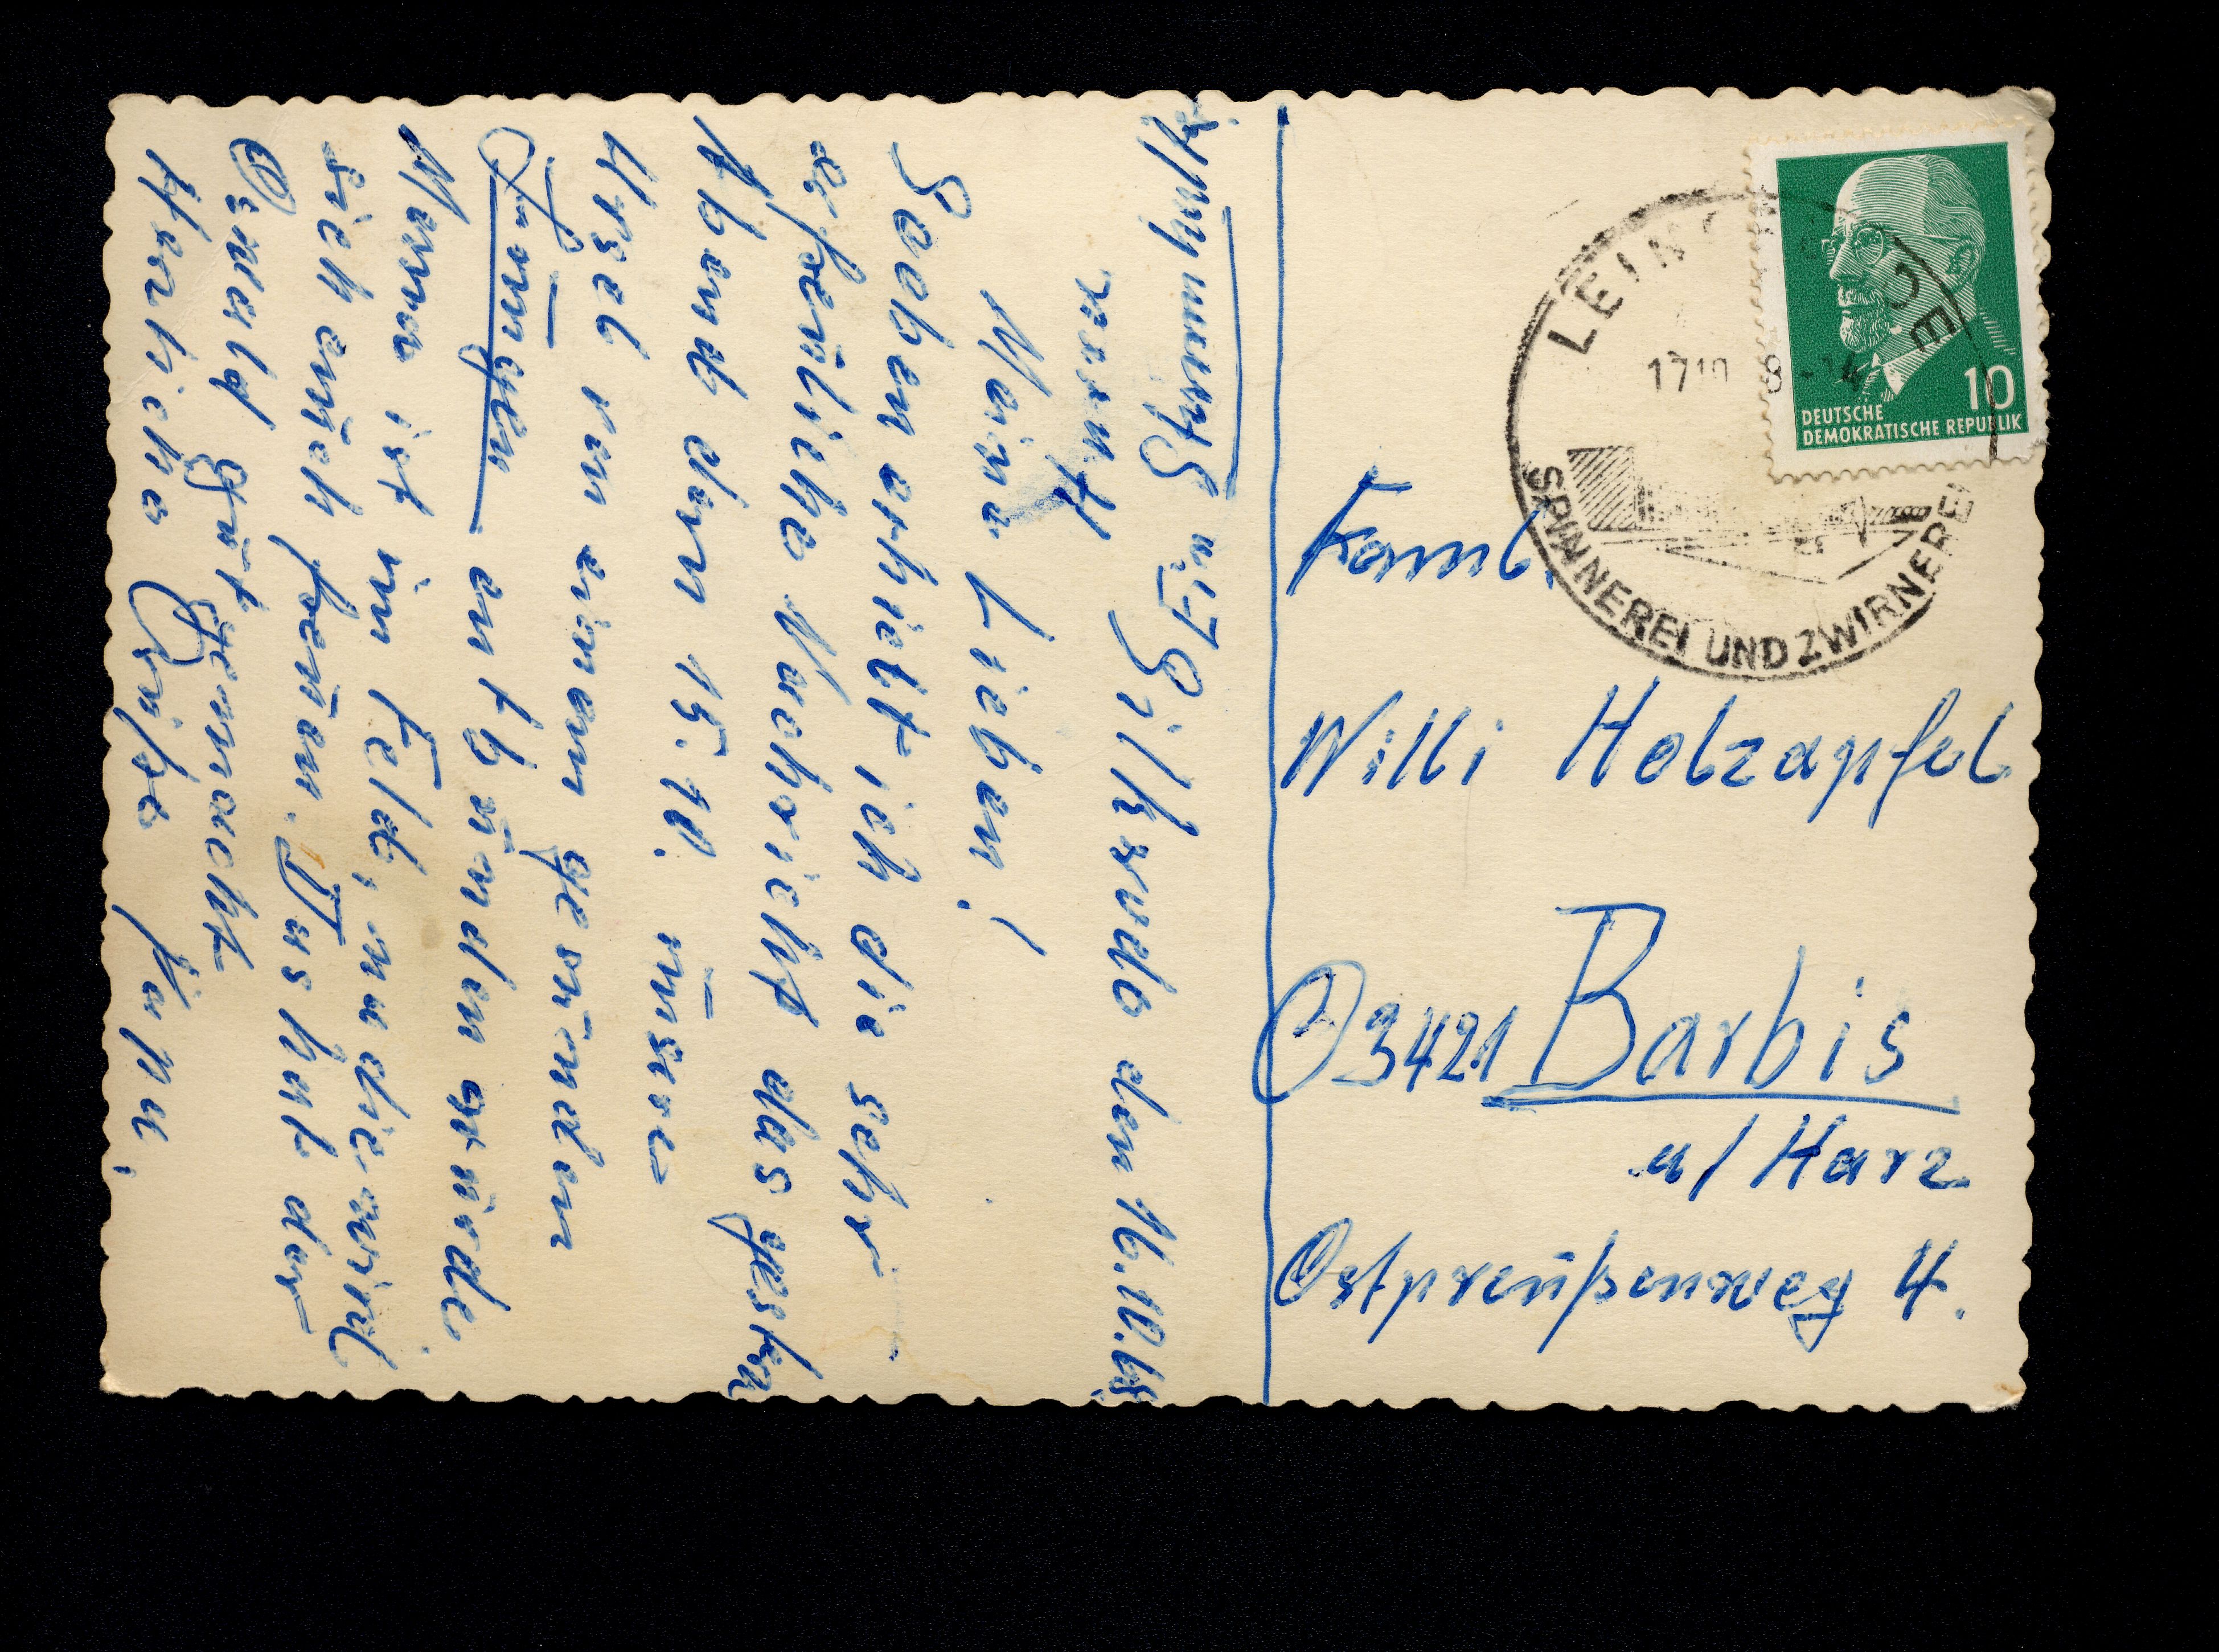 Silkerode den 16.10.68
Meine Lieben!
Soeben erhielt ich die sehr
erfreuliche Nachricht das gestern
Abend den 15.10. unsere
Ursel von einem gesunden
Jungen entbunden wurde.
Mama ist im Feld, na die wird
sich auch freuen. Das hat der
gut gemacht
Herzliche Grüße Papa.
10
DEUTSCHE
DEMOKRATISCHE REPUBLIK
SPINNEREI UND ZWIRNEREI
Faml.
Willi Holzapfel
3421 Barbis
a/Harz
Ostpreußenweg 4.